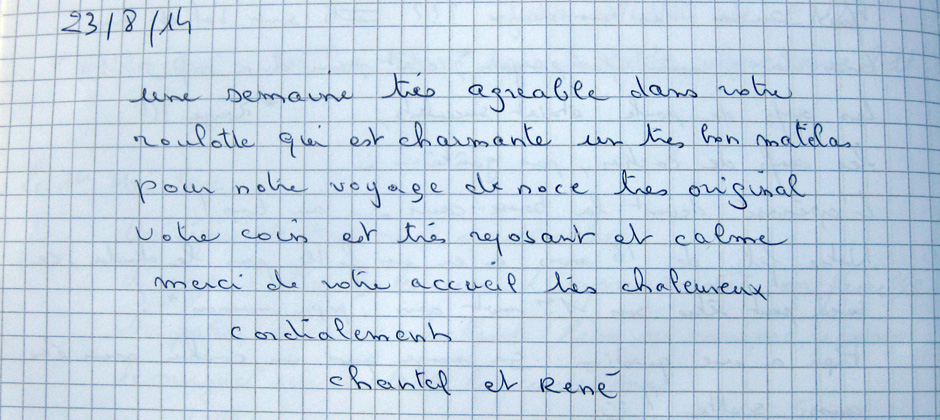 23/8/14
une semaine très agreable dans votre
roulotte qui est charmante un très bon matelas
pour notre voyage de noce très original
votre coin est très reposant et calme
merci de votre accueil très chaleureux
cordialement
chantal et René